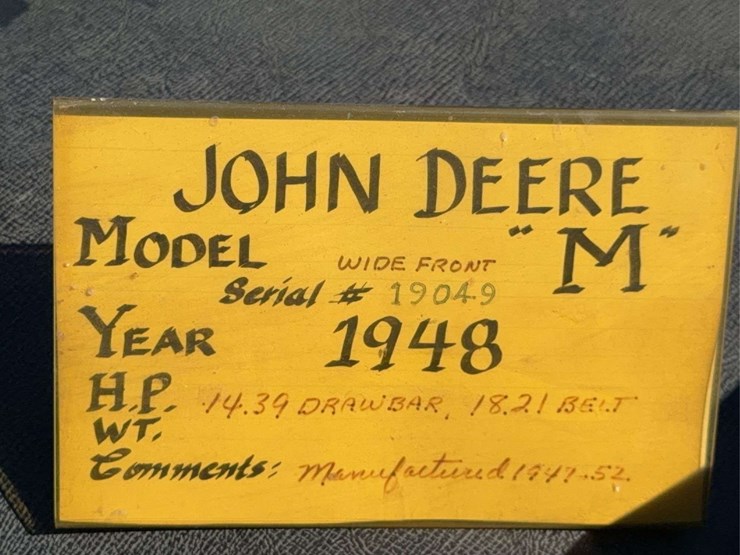 JOHN DEERE
MODEL WIDE FRONT "M"
Serial # 19049
YEAR 1948
H.P. 14.39 DRAWBAR, 18.21 BELT
WT.
Comments: Manufactured 1947-52.